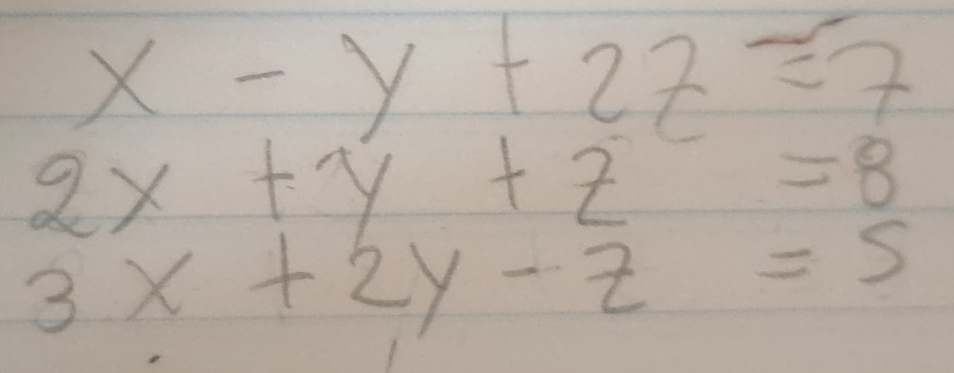 x - y + 2z = 7
2x + y + z = 8
3x + 2y - z = 5